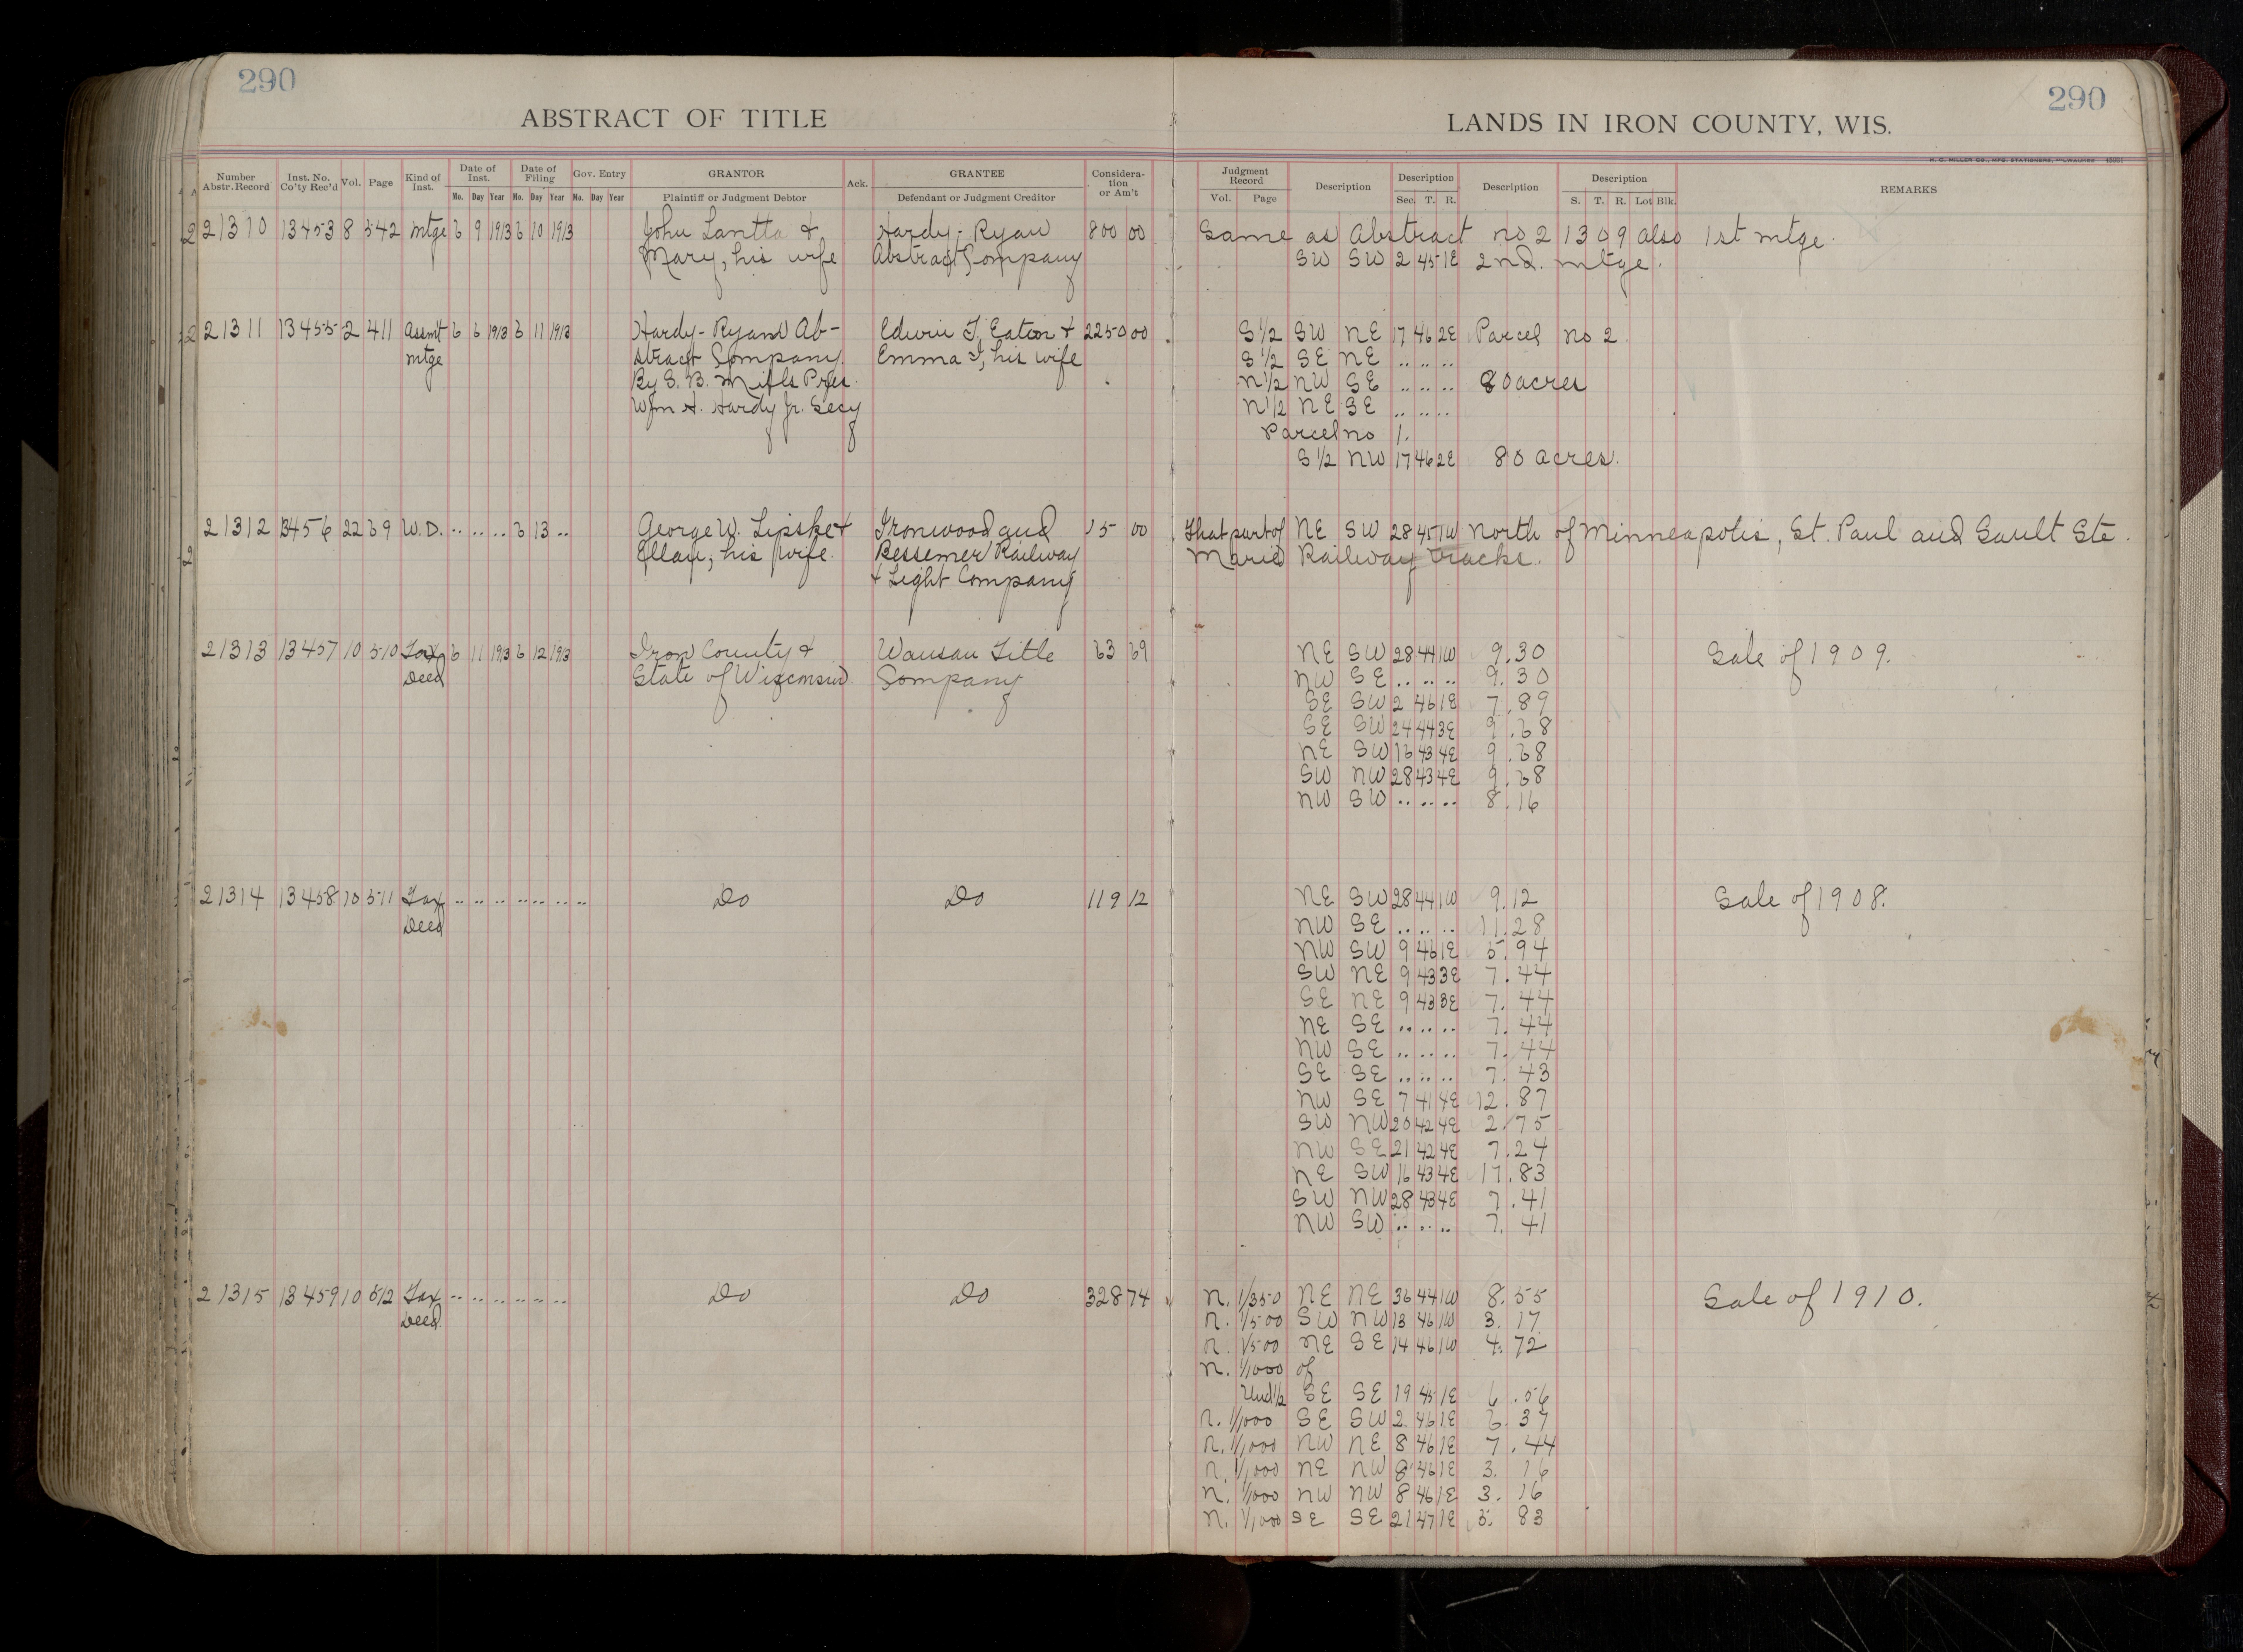 290
290
ABSTRACT OF TITLE
LANDS IN IRON COUNTY, WIS.
H. C. MILLER CO., MFG. STATIONERS, MILWAUKEE
Number Abstr. Record Inst. No. Co'ty Rec'd Vol. Page Kind of Inst. Date of Inst. Date of Filing Gov. Entry GRANTOR Ack. GRANTEE Consideration or Am't Judgment Record Description Description Description Description REMARKS
Mo. Day Year Mo. Day Year Mo. Day Year Plaintiff or Judgment Debtor Defendant or Judgment Creditor Vol. Page Sec. T. R. S. T. R. Lot Blk.
21310 13453 8 542 Mtge 6 9 1913 6 10 1913 John Lantta & Hardy-Ryan 800 00 Same as Abstract no 21309 also 1st mtge.
Mary, his wife Abstract Company SW SW 2 45 1E 2nd. mtge.
21311 13455 2 411 Assmt 6 6 1913 6 11 1913 Hardy-Ryan Ab- Edwin T. Eaton & 2250 00 S 1/2 SW NE 17 46 2E Parcel no 2.
mtge stract Company Emma I, his wife S 1/2 SE NE .. .. ..
By S. B. Mills Pres. N 1/2 NW SE .. .. .. 80 acres
Wm H. Hardy Jr. Secy N 1/2 NE SE .. .. ..
Parcel no 1.
S 1/2 NW 17 46 2E 80 acres.
21312 13456 22 69 W.D. .. .. .. 6 13 .. George W. Lipske & Ironwood and 15 00 That part of NE SW 28 45 1W North of Minneapolis, St. Paul and Sault Ste.
Ellan, his wife. Bessemer Railway Marie Railway tracks.
& Light Company
21313 13457 10 510 Tax 6 11 1913 6 12 1913 Iron County & Wausau Title 63 69 NE SW 28 44 1W 9.30 Sale of 1909.
Deed State of Wisconsin Company NW SE .. .. .. 9.30
SE SW 2 46 1E 7.89
SE SW 24 44 3E 9.68
NE SW 16 43 4E 9.68
SW NW 28 43 4E 9.68
NW SW .. .. .. 8.16
21314 13458 10 511 Tax .. .. .. .. .. .. Do Do 119 12 NE SW 28 44 1W 9.12 Sale of 1908.
Deed NW SE .. .. .. 11.28
NW SW 9 46 1E 5.94
SW NE 9 43 3E 7.44
SE NE 9 43 3E 7.44
NE SE .. .. .. 7.44
NW SE .. .. .. 7.44
SE SE .. .. .. 7.43
NW SE 7 41 4E 12.87
SW NW 20 42 4E 2.75
NW SE 21 42 4E 7.24
NE SW 16 43 4E 17.83
SW NW 28 43 4E 7.41
NW SW .. .. .. 7.41
21315 13459 10 512 Tax .. .. .. .. .. .. Do Do 328 74 N. 1/350 NE NE 36 44 1W 8.55 Sale of 1910.
Deed. N. 1/500 SW NW 13 46 1W 3.17
N. 1/500 NE SE 14 46 1W 4.72
N. 1/1000 of
Und 1/2 SE SE 19 45 1E 6.56
N. 1/1000 SE SW 2 46 1E 6.37
N. 1/1000 NW NE 8 46 1E 7.44
N. 1/1000 NE NW 8 46 1E 3.16
N. 1/1000 NW NW 8 46 1E 3.16
N. 1/1000 SE SE 21 47 1E 5.83